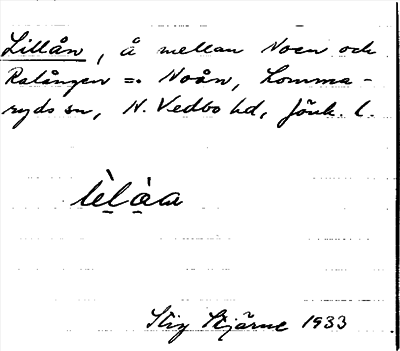 Lillån, å mellan Noen och
Ralången = Noån, Lomma-
ryds sn, N. Vedbo hd, Jönk. l.
Stig Stjärne 1933